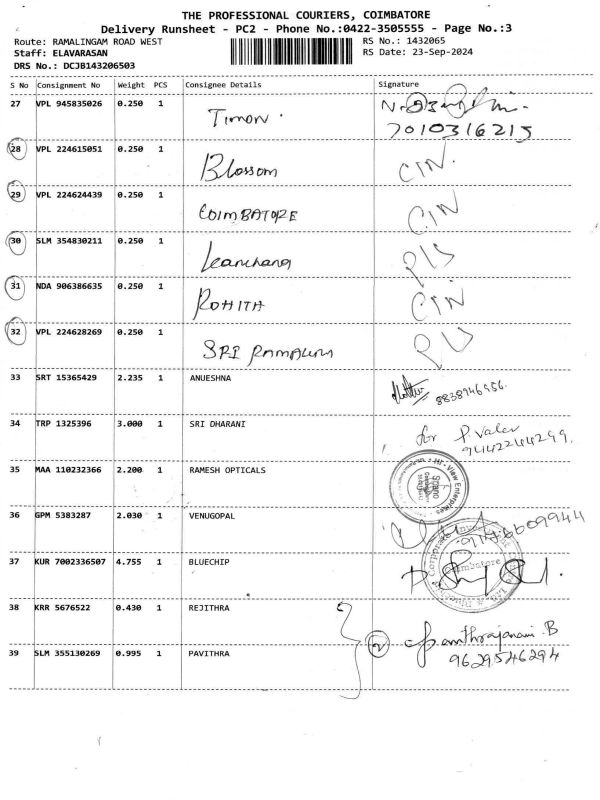 THE PROFESSIONAL COURIERS, COIMBATORE
Delivery Runsheet - PC2 - Phone No.:0422-3505555 - Page No.:3
Route: RAMALINGAM ROAD WEST RS No.: 1432065
Staff: ELAVARASAN RS Date: 23-Sep-2024
DRS No.: DCJB143206503
S No Consignment No Weight PCS Consignee Details Signature
27 VPL 945835026 0.250 1 Timon.
7010316215
28 VPL 224615051 0.250 1 Blossom CIN.
29 VPL 224624439 0.250 1 COIMBATORE CIN
30 SLM 354830211 0.250 1
31 NDA 906386635 0.250 1 ROHITH CIN
32 VPL 224628269 0.250 1 SRI
33 SRT 15365429 2.235 1 ANUESHNA
8838946956.
34 TRP 1325396 3.000 1 SRI DHARANI for P Valar
9442244299.
35 MAA 110232366 2.200 1 RAMESH OPTICALS Hi-View Enterprises
36 GPM 5383287 2.030 1 VENUGOPAL
37 KUR 7002336507 4.755 1 BLUECHIP
38 KRR 5676522 0.430 1 REJITHRA
39 SLM 355130269 0.995 1 PAVITHRA 2
9629546294